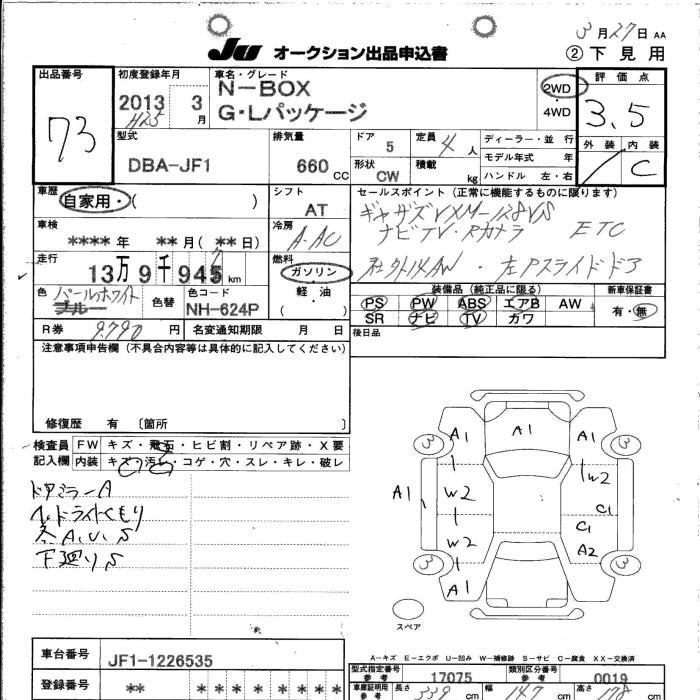 3月27日 AA
JU オークション出品申込書
②下見用
出品番号
73
初度登録年月
2013 3月
H25
車名・グレード
N-BOX
G・Lパッケージ
2WD
・
4WD
評価点
3.5
外装 内装
C
型式
DBA-JF1
排気量
660CC
ドア
5
定員
4人
形状
CW
積載
kg
ディーラー・並行
モデル年式 年
ハンドル 左・右
車歴
自家用・( )
シフト
AT
セールスポイント(正常に機能するものに限ります)
ギャザズVXM-128VS
ナビTV・Rカメラ ETC
社外14AW・左Pスライドドア
車検
****年 **月(**日)
冷房
A-AC
走行
13万9千945km
燃料
ガソリン
軽・油
( )
色
パールホワイト
ブルー
色替
色コード
NH-624P
装備品(純正品に限る)
PS PW ABS エアB AW
SR ナビ TV カワ
新車保証書
有・無
R券 9,790円
名変通知期限 月 日
後日品
注意事項申告欄(不具合内容等は具体的に記入してください)
修復歴 有〔箇所 〕
検査員
記入欄
FW キズ・飛石・ヒビ割・リペア跡・X要
内装 キズ・汚れ・コゲ・穴・スレ・キレ・破レ
ドアミラーA
ヘッドライトくもり
各A,U,S
下廻りS
A1 A1 A1
3 3
A1 W2 W2
C1
C1
W2 A2
3 3
A1
スペア
A-キズ E-エクボ U-凹み W-補修跡 S-サビ C-腐食 XX-交換済
車台番号
JF1-1226535
登録番号
** * * * * * * *
型式指定番号
参考
17075
類別区分番号
参考
0019
車庫証明用
参考
長さ 339cm 幅 147cm 高さ 178cm